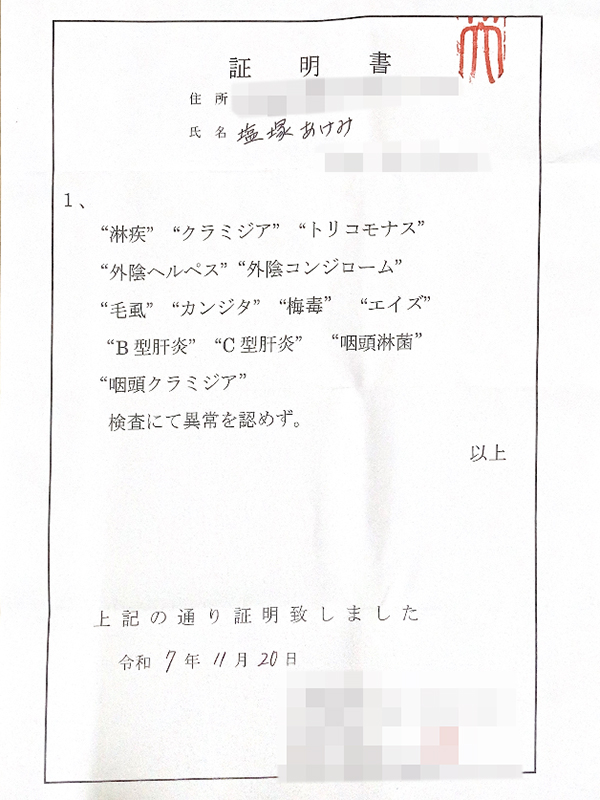 証明書
住所
氏名 塩塚あけみ
1、
“淋疾” “クラミジア” “トリコモナス”
“外陰ヘルペス” “外陰コンジローム”
“毛虱” “カンジタ” “梅毒” “エイズ”
“B型肝炎” “C型肝炎” “咽頭淋菌”
“咽頭クラミジア”
検査にて異常を認めず。
以上
上記の通り証明致しました
令和 7年 11月 20日